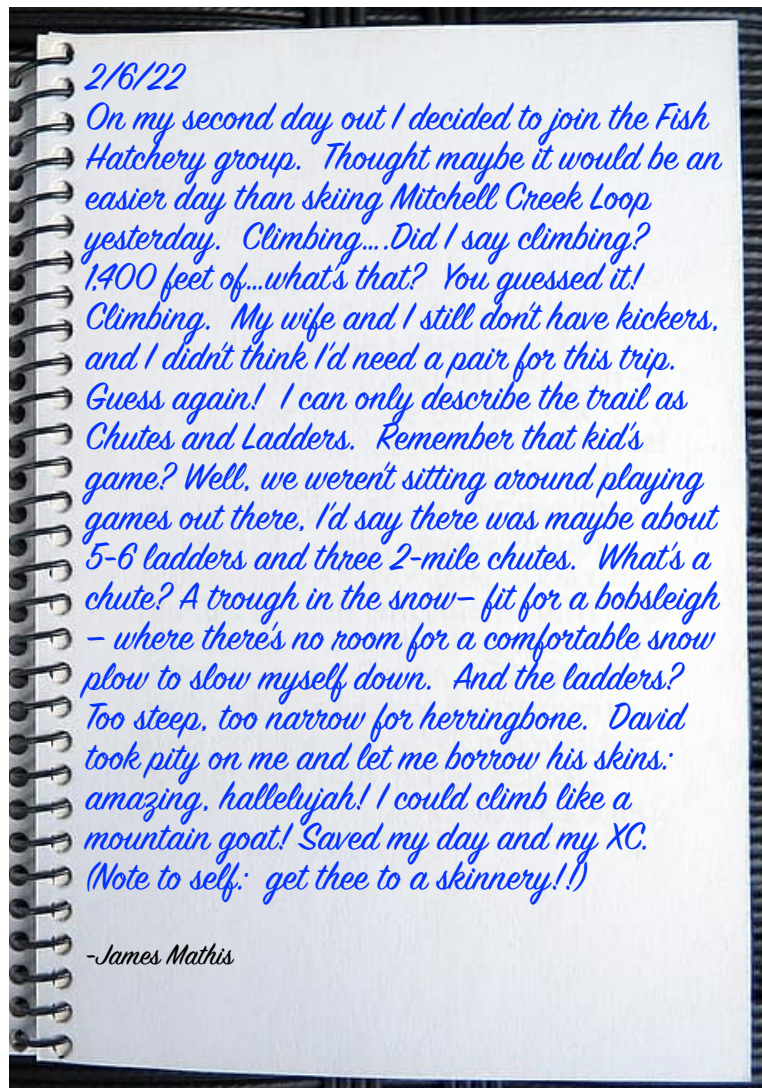 2/6/22
On my second day out I decided to join the Fish
Hatchery group.  Thought maybe it would be an
easier day than skiing Mitchell Creek Loop
yesterday.  Climbing....Did I say climbing?
1,400 feet of...what's that?  You guessed it!
Climbing.  My wife and I still don't have kickers,
and I didn't think I'd need a pair for this trip.
Guess again!  I can only describe the trail as
Chutes and Ladders.  Remember that kid's
game? Well, we weren't sitting around playing
games out there, I'd say there was maybe about
5-6 ladders and three 2-mile chutes.  What's a
chute? A trough in the snow– fit for a bobsleigh
– where there's no room for a comfortable snow
plow to slow myself down.  And the ladders?
Too steep, too narrow for herringbone.  David
took pity on me and let me borrow his skins:
amazing, hallelujah! I could climb like a
mountain goat! Saved my day and my XC.
(Note to self:  get thee to a skinnery!!)
-James Mathis